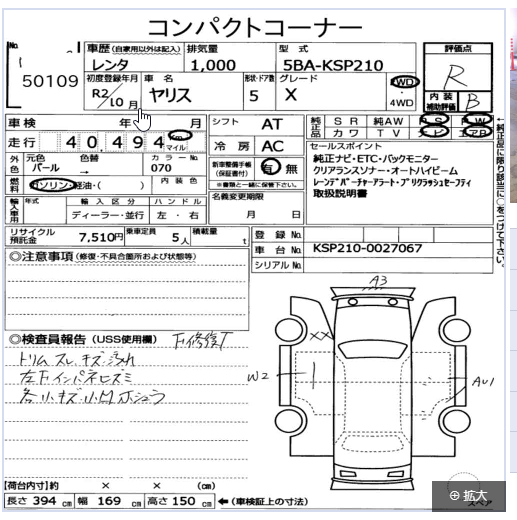 コンパクトコーナー
No. 50109
車歴 (自家用以外は記入) レンタ
排気量 1,000
型式 5BA-KSP210
評価点 R
初度登録年月 R2年 10月
車名 ヤリス
形状・ドア数 5
グレード X
2WD ・ 4WD
内装補助評価 B
車検 年 月
シフト AT
純正品 SR 純AW PS PW
カワ TV ナビ エアB
←純正品に限り該当に○をつけて下さい。
走行 40,494 km マイル
冷房 AC
セールスポイント
純正ナビ・ETC・バックモニター
クリアランスソナー・オートハイビーム
レーンデパーチャーアラート・プリクラッシュセーフティ
取扱説明書
外色 元色 パール 色替 → カラーNo. 070
新車整備手帳 (保証書付) 有 無
※書類と一緒に保管下さい。
燃料 ガソリン・軽油・( ) 内装色
名義変更期限 月 日
輸入車用 年式 輸入区分 ディーラー・並行 ハンドル 左・右
リサイクル預託金 7,510円
乗車定員 5人
積載量 t
登録No.
車台No. KSP210-0027067
シリアルNo.
◎注意事項 (修復・不具合箇所および状態等)
◎検査員報告 (USS使用欄)
トリム スレ キズ 汚れ
左下インパネヒズミ
各小キズ小凹
A3
XX
W2
AU1
スペア
【荷台内寸】約 × × (cm)
長さ 394 cm 幅 169 cm 高さ 150 cm ←(車検証上の寸法)
拡大